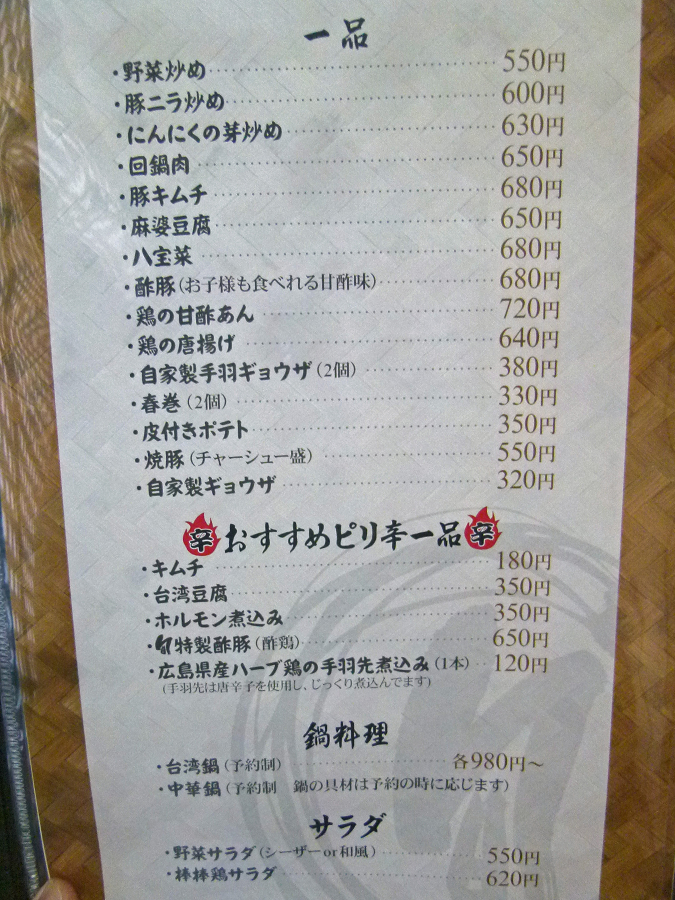 一品
・野菜炒め 550円
・豚ニラ炒め 600円
・にんにくの芽炒め 630円
・回鍋肉 650円
・豚キムチ 680円
・麻婆豆腐 650円
・八宝菜 680円
・酢豚(お子様も食べれる甘酢味) 680円
・鶏の甘酢あん 720円
・鶏の唐揚げ 640円
・自家製手羽ギョウザ(2個) 380円
・春巻(2個) 330円
・皮付きポテト 350円
・焼豚(チャーシュー盛) 550円
・自家製ギョウザ 320円
辛おすすめピリ辛一品辛
・キムチ 180円
・台湾豆腐 350円
・ホルモン煮込み 350円
・特製酢豚(酢鶏) 650円
・広島県産ハーブ鶏の手羽先煮込み(1本) 120円
(手羽先は唐辛子を使用し、じっくり煮込んでます)
鍋料理
・台湾鍋(予約制) 各980円〜
・中華鍋(予約制 鍋の具材は予約の時に応じます)
サラダ
・野菜サラダ(シーザーor和風) 550円
・棒棒鶏サラダ 620円